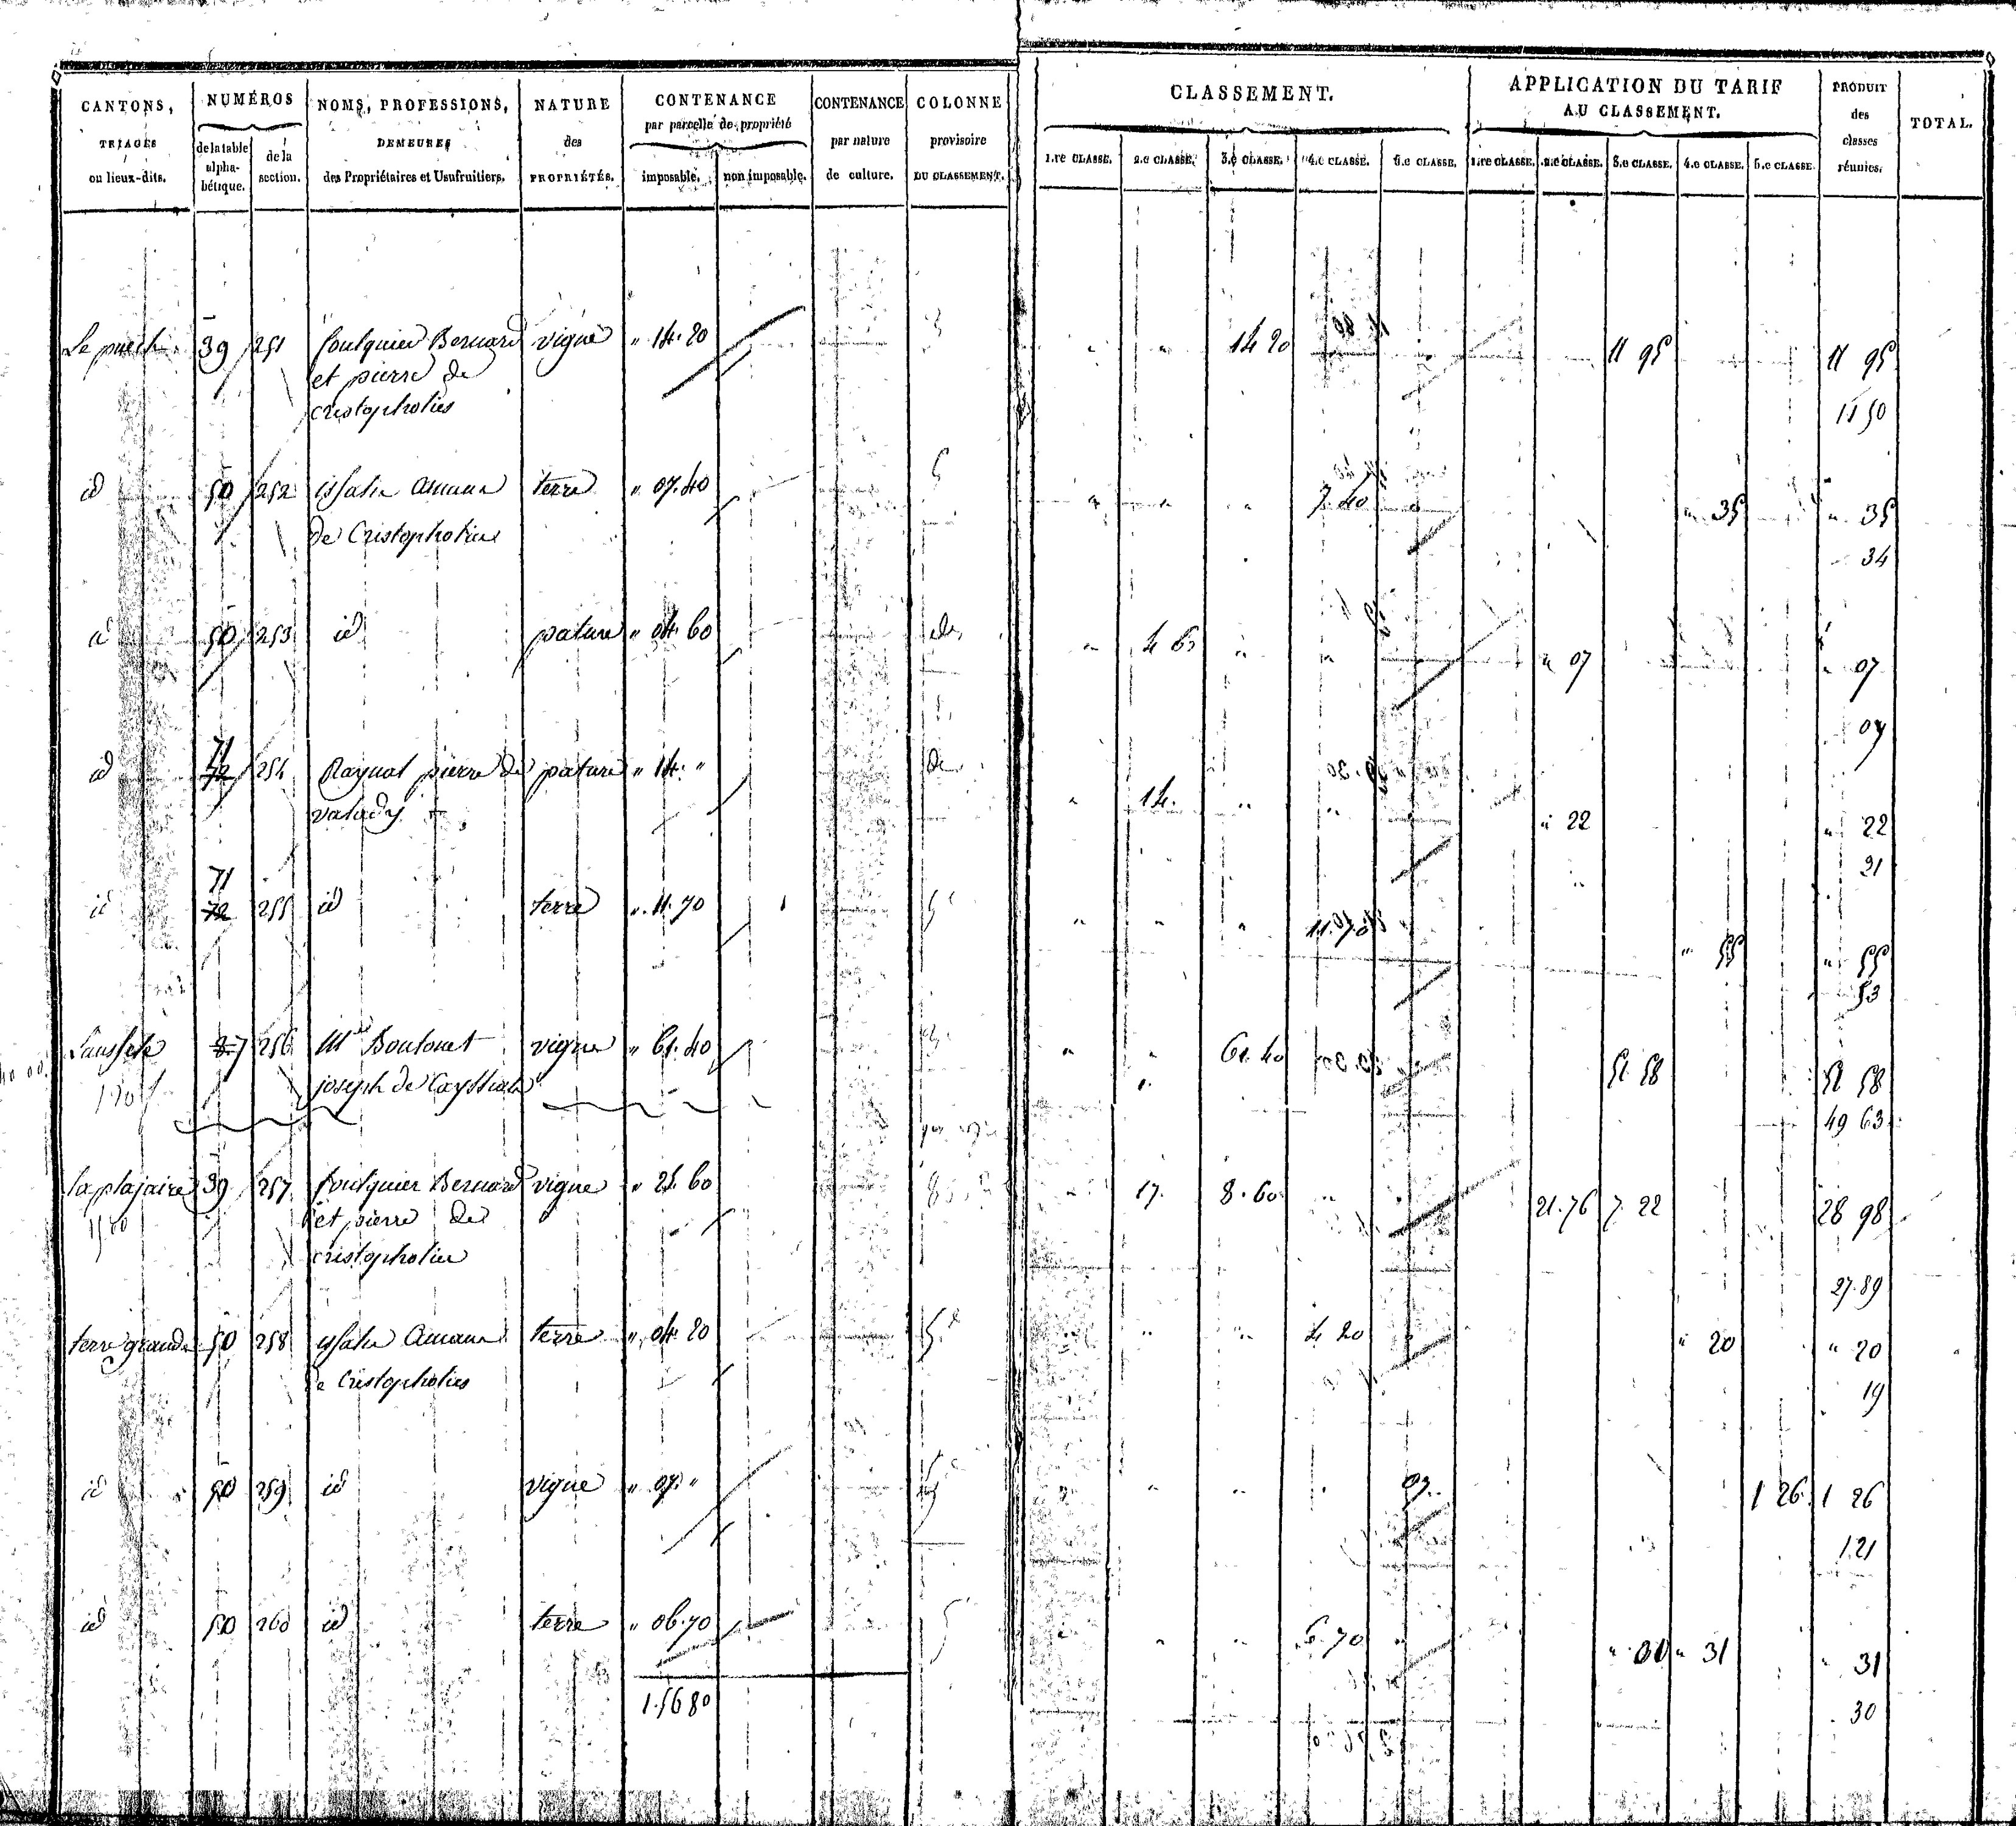 CANTONS, TRIAGES ou lieux-dits. NUMÉROS de la table alphabétique. de la section. NOMS, PROFESSIONS, DEMEURES des Propriétaires et Usufruitiers. NATURE des PROPRIÉTÉS. CONTENANCE par parcelle de propriété imposable. non imposable. CONTENANCE par nature de culture. COLONNE provisoire DU CLASSEMENT. CLASSEMENT. 1.re CLASSE. 2.e CLASSE. 3.e CLASSE. 4.e CLASSE. 5.e CLASSE. APPLICATION DU TARIF AU CLASSEMENT. 1.re CLASSE. 2.e CLASSE. 3.e CLASSE. 4.e CLASSE. 5.e CLASSE. PRODUIT des classes réunies. TOTAL.
Le puech 39 251 foulquier Bernard vigne " 14.20 14 20 11 95 11 95
et pierre de
cristopholies 11 50
id 50 252 issalie amans terre " 07.40 7.40 " 35 " 35
de Cristopholies 34
id 50 253 id pature " 04.60 4 60 " 07 " 07
07
id 71 72 254 Raynal pierre de pature " 14. " 14. " 22 " 22
valady 21
id 71 72 255 id terre " 11.70 11.70 " 55 " 55
53
87 256 Boutonet vigne " 61.40 61.40 51 58 51 58
joseph de 49 63
la plajaire 39 257 foulquier Bernard vigne " 25.60 17. 8.60 21.76 7.22 28 98
et pierre de
cristopholies 27.89
terre grande 50 258 issalie amans terre " 04.20 4 20 " 20 " 20
de Cristopholies 19
id 50 259 id vigne " 07. " 07. 1 26 1 26
1.21
id 50 260 id terre " 06.70 6.70 " 31 " 31
1.5680 30